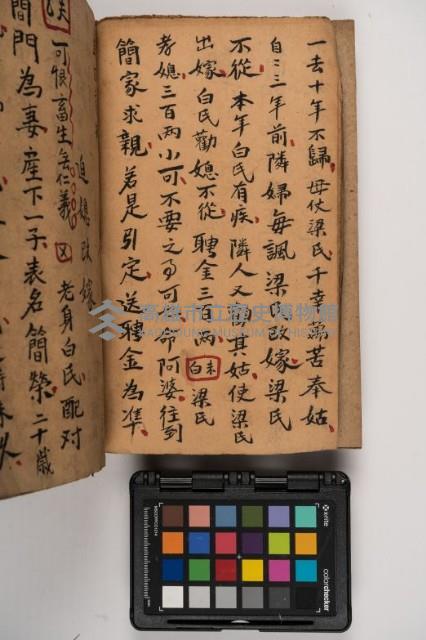 一去十年不歸母使梁氏千辛萬苦奉姑
自二三年前隣婦每諷梁氏改嫁梁氏
不從本年白氏有疾隣人又 其姑使梁氏
出嫁白氏勸媳不從聘金三百兩 白末 梁氏
孝媳三百兩小可不要之 可 命阿婆往到
簡家求親若是引定送聘金為準
迫媳改嫁
可恨畜生無仁義 又 老身白氏配对
簡門為妻産下一子表名簡榮二十歲
高雄市立歷史博物館
KAOHSIUNG MUSEUM OF HISTORY
x-rite
colorchecker